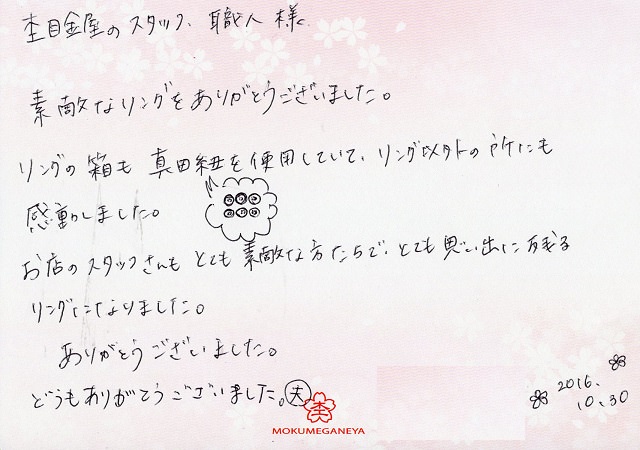 杢目金屋のスタッフ、職人 様
素敵なリングをありがとうございました。
リングの箱も 真田紐を使用していて、リング以外の所にも
感動しました。
お店のスタッフさんも とても 素敵な方たちで、とても 思い出に残る
リングになりました。
ありがとうございました。
どうもありがとうございました。夫
杢
MOKUMEGANEYA
2016.
10.30